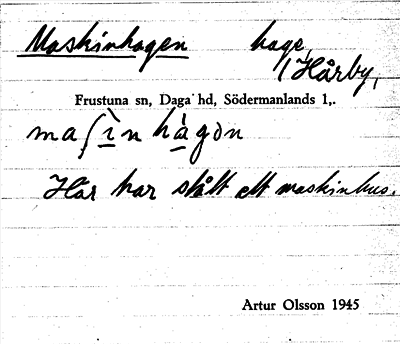 Maskinhagen hage,
(Hårby,
Frustuna sn, Daga hd, Södermanlands l,.
maʃìnhàgɔn
Här har stått ett maskinhus.
Artur Olsson 1945